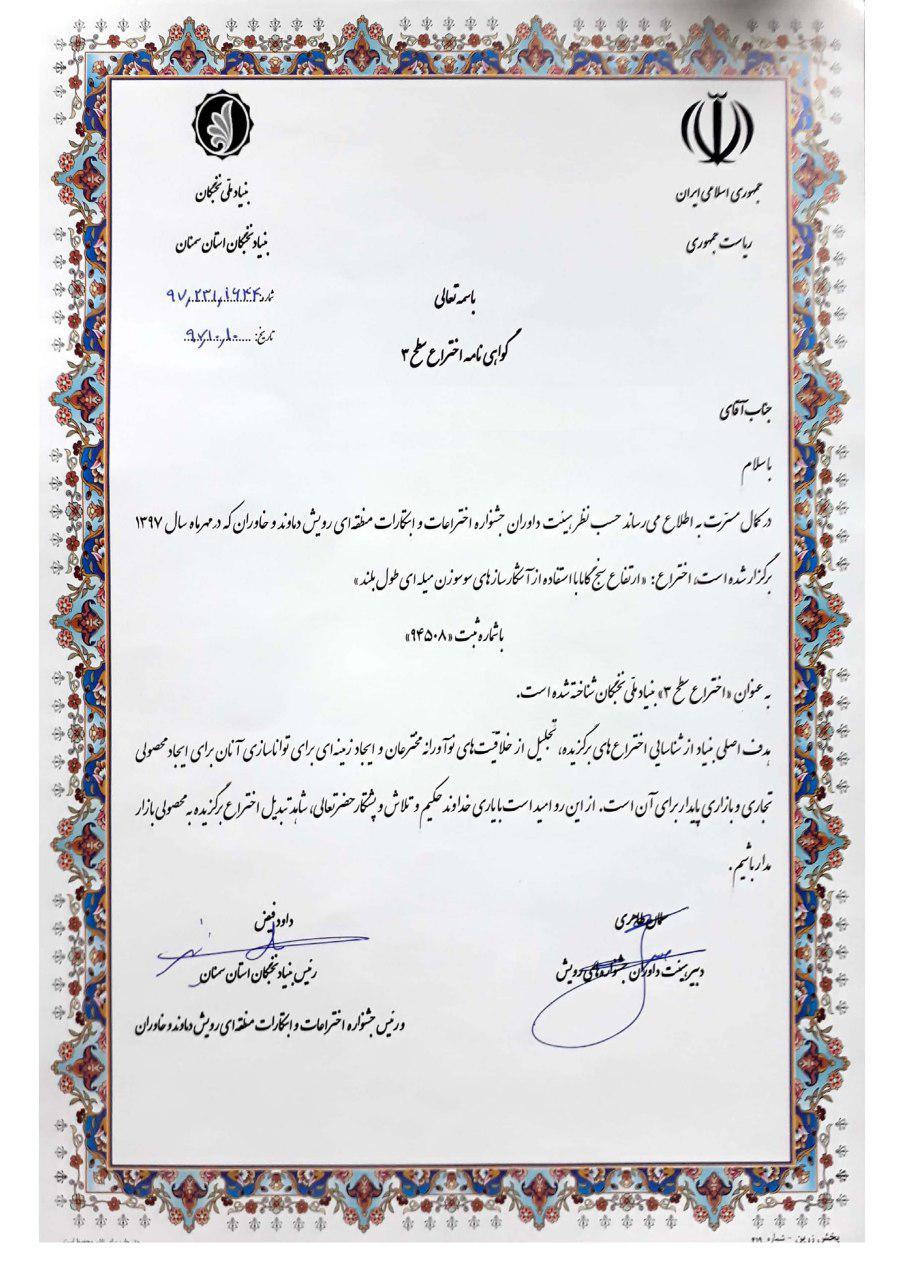 جمهوری اسلامی ایران
ریاست جمهوری
بنیاد ملی نخبگان
بنیاد نخبگان استان سمنان
شماره: ۹۷/۲۳۱/۱۶۴۴
تاریخ: ۹۷/۱۰/۱۰
باسمه تعالی
گواهی نامه اختراع سطح ۳
جناب آقای
باسلام
در کمال مسرّت به اطلاع می‌رساند حسب نظر هیئت داوران جشنواره اختراعات و ابتکارات منطقه‌ای رویش دماوند و خاوران که در مهرماه سال ۱۳۹۷
برگزار شده است، اختراع: «ارتفاع سنج گاما با استفاده از آشکارسازهای سوسوزن میله‌ای طول بلند»
با شماره ثبت «۹۴۵۰۸»
به عنوان «اختراع سطح ۳» بنیاد ملّی نخبگان شناخته شده است.
هدف اصلی بنیاد از شناسایی اختراع‌های برگزیده، تجلیل از خلاقیّت‌های نوآورانه مخترعان و ایجاد زمینه‌ای برای تواناسازی آنان برای ایجاد محصولی
تجاری و بازاری پایدار برای آن است. از این رو امید است با یاری خداوند حکیم و تلاش و پشتکار حضرتعالی، شاهد تبدیل اختراع برگزیده به محصولی بازار
مدار باشیم.
سلمان طاهری
دبیر هیئت داوران جشنواره‌های رویش
داود فیض
رئیس بنیاد نخبگان استان سمنان
و رئیس جشنواره اختراعات و ابتکارات منطقه‌ای رویش دماوند و خاوران
پخش زرین - شماره ۴۱۹